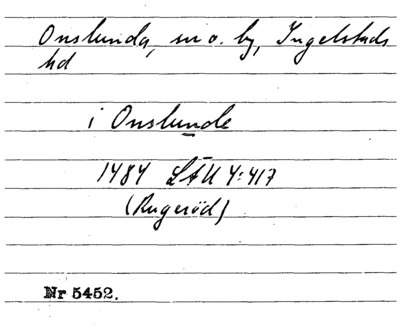 Onslunda, sn o. by, Ingelstads
hd
i Onslunde
1484 LÄU 4:417
(Rugeröd)
Nr 5452.